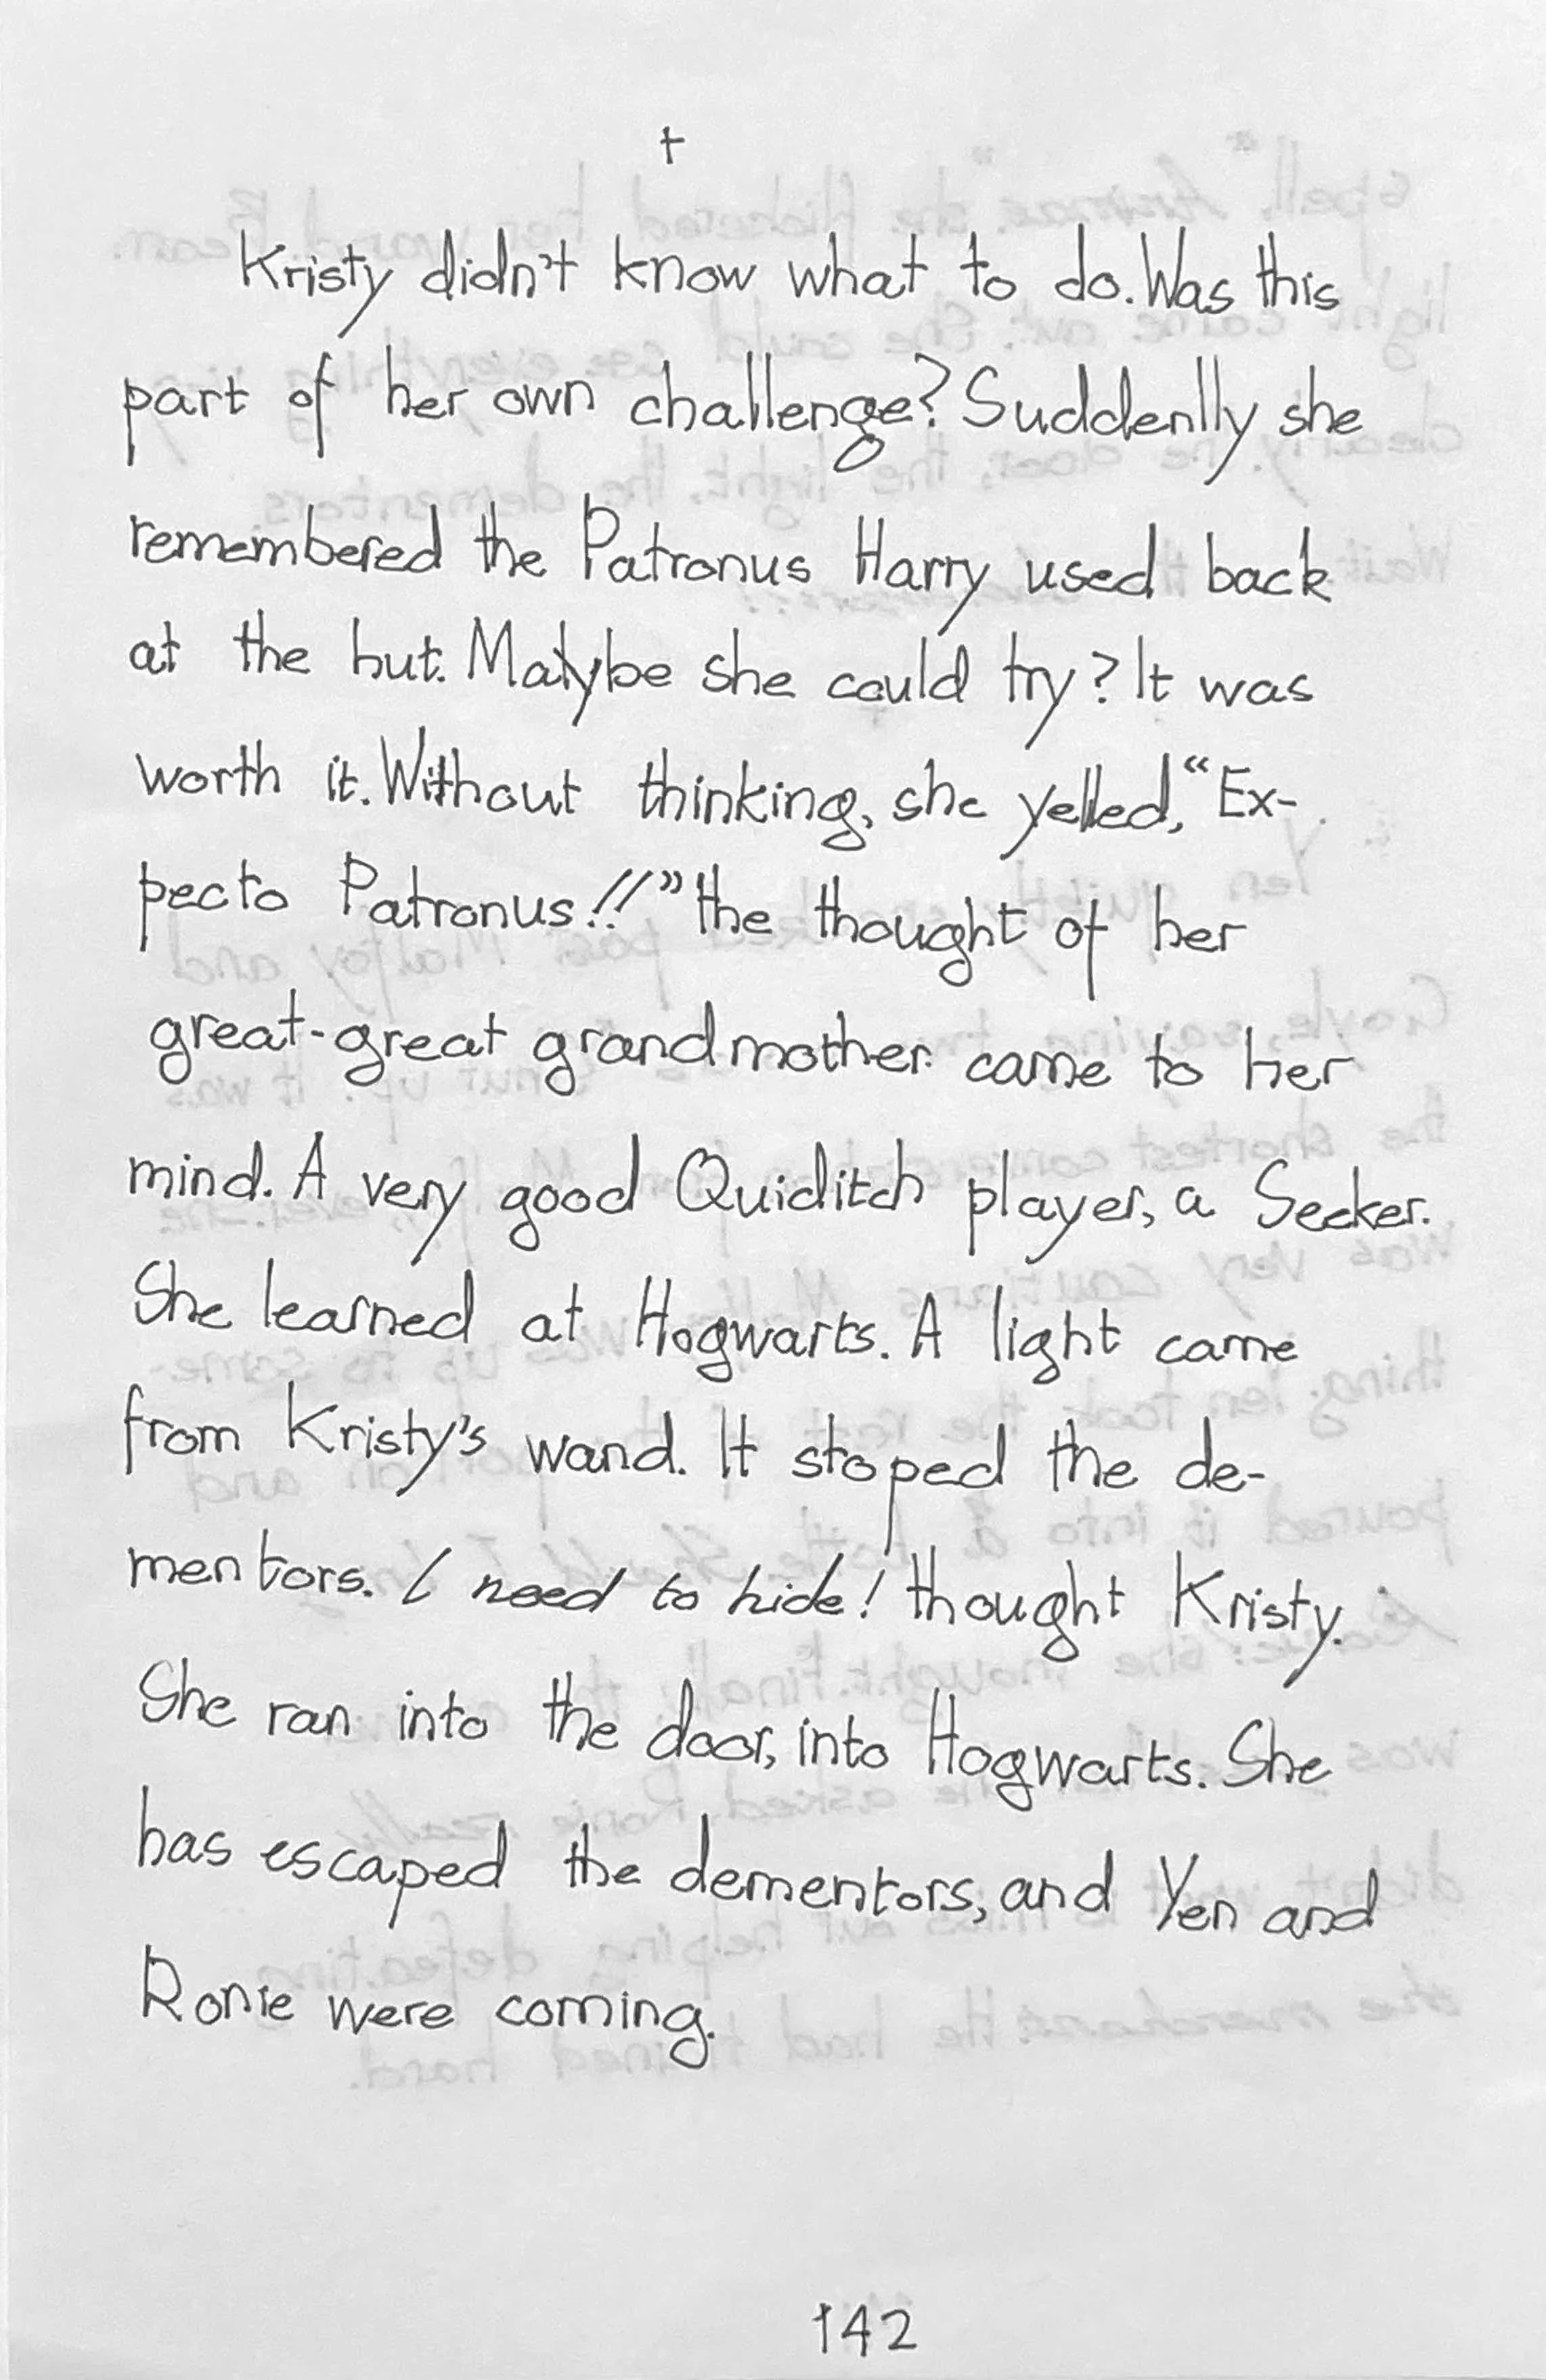 †
Kristy didn't know what to do. Was this
part of her own challenge? Suddenlly she
remembered the Patronus Harry used back
at the hut. Matybe she could try? It was
worth it. Without thinking, she yelled, “Ex-
pecto Patronus!!” the thought of her
great-great grandmother came to her
mind. A very good Quiditch player, a Seeker.
She learned at Hogwarts. A light came
from Kristy's wand. It stoped the de-
mentors. I need to hide! thought Kristy.
She ran into the door, into Hogwarts. She
has escaped the dementors, and Yen and
Ronie were coming.
142